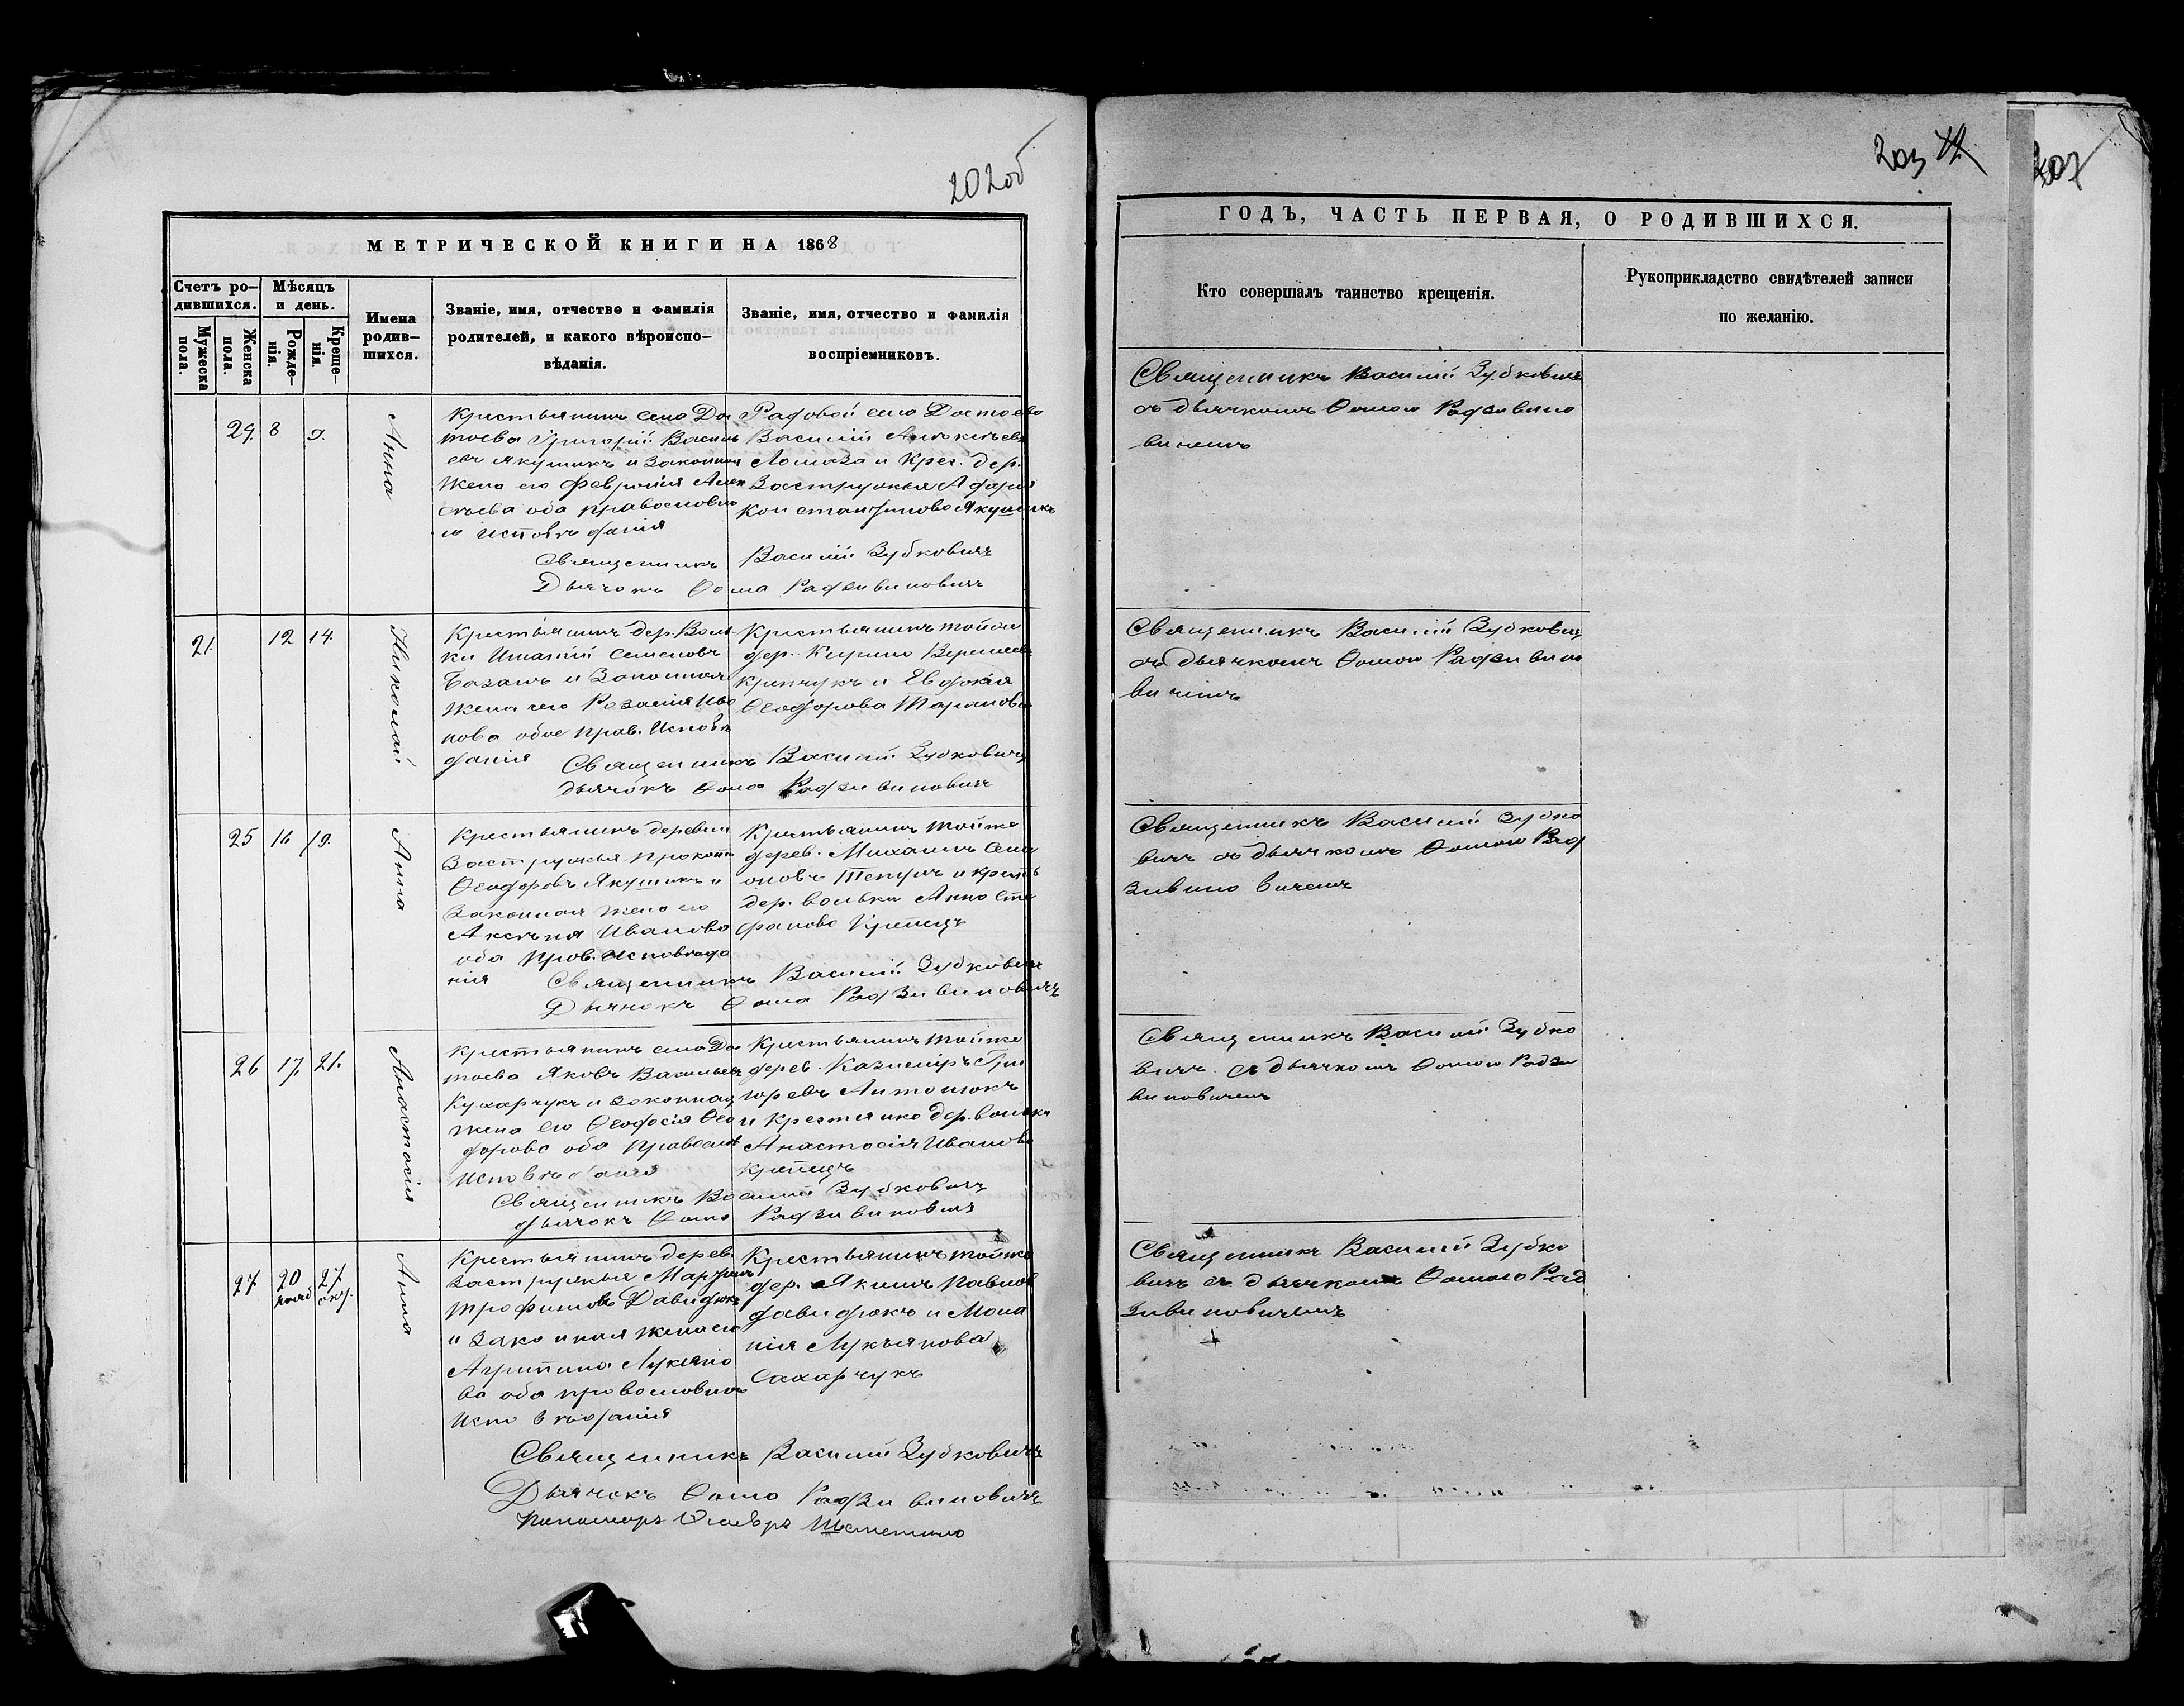 202об
МЕТРИЧЕСКОЙ КНИГИ НА 1868
Счетъ ро-
дившихся.
Мѣсяцъ
и день.
Мужеска
пола.
Женска
пола.
Рожде-
нія.
Креще-
нія.
Имена
родив-
шихся.
Званіе, имя, отчество и фамилія
родителей, и какого вѣроиспо-
вѣданія.
Званіе, имя, отчество и фамилія
воспріемниковъ.
24. 8 9.
Анна
Крестьянинъ села До
тоева Григорій Василь
евъ Якушикъ и Законная
Жена его Феврнія Алек
сѣева оба православна
го исповѣданія
Радовой села Достоева
Василій
Ломаза и Крес. дер.
Застружья
Константинова Якушикъ
Священникъ Василій Зубковичъ
Дьячокъ Ѳома Радзивиновичъ
21. 12 14.
Николай
Крестьянинъ дер. Воль
ки Игнатій Семеновъ
Базанъ и Законная
Жена его Розалія Ива
нова обое прав. Исповѣ
данія
Крестьянинъ тойже
дер.
Кринчукъ и Евдокія
Ѳеодорова
Священникъ Василій Зубковичъ
дьячокъ Ѳома Радзивиновичъ
25 16 19.
Анна
Крестьянинъ деревни
Застружья Прокоп
Ѳеодоровъ Якушикъ и
Законная жена его
Аксѣнія Иванова
оба прав. исповѣда
нія
Крестьянинъ тойже
дерев. Михаилъ Сем
оновъ и крест
дер. Вольки Анна Сте
фанова Крепецъ
Священникъ Василій Зубковичъ
Дьячокъ Ѳома Радзивиновичъ
26 17. 21.
Анастасія
Крестьянинъ села До
тоева Яковъ Васильевъ
Кухарчукъ и законная
жена его Ѳеодосія Ѳео
дорова оба православ
исповѣданія
Крестьянинъ тойже
дерев. Казиміръ Гри
горевъ Антонюкъ
и Крестянка дер. вольки
Анастасія Иванова
Крепецъ
Священникъ Василій Зубковичъ
дьячокъ Ѳома Радзивиновичъ
27. 20 27.
нояб
Анна
Крестьянинъ дерев.
Застружья Мартинъ
Трофимовъ Давидюкъ
и Законная жена его
Агрипина Лукяно
ва оба православнаго
Исповѣданія
Крестьянинъ тойже
дер. Якимъ Павлов
давидюкъ и Мела
нія Лукьянова
Сахарчукъ
Священникъ Василій Зубковичъ
Дьячокъ Ѳома Радзивиновичъ
Пономарь
203
207
ГОДЪ, ЧАСТЬ ПЕРВАЯ, О РОДИВШИХСЯ.
Кто совершалъ таинство крещенія.
Рукоприкладство свидѣтелей записи
по желанію.
Священникъ Василій Зубковичъ
съ дьячкомъ Ѳомою Радзивино
вичемъ
Священникъ Василій Зубковичъ
съ дьячкомъ Ѳомою Радзивино
вичемъ
Священникъ Василій Зубко
вичъ съ дьячкомъ Ѳомою Рад
зивиновичемъ
Священникъ Василій Зубко
вичъ съ дьячкомъ Ѳомою Радзи
виновичемъ
Священникъ Василій Зубко
вичъ съ дьячкомъ Ѳомою Рад
зивиновичемъ